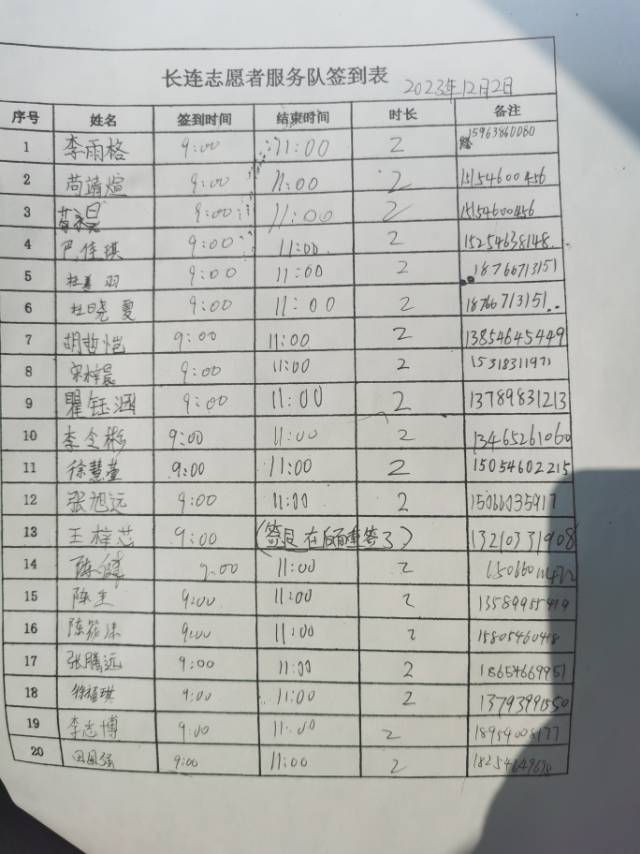 长连志愿者服务队签到表 2023年12月2日
序号 姓名 签到时间 结束时间 时长 备注
1 李雨格 9:00 11:00 2 15963860080
2 尚靖煊 9:00 11:00 2 15154600456
3 9:00 11:00 2 15154600456
4 尹佳琪 9:00 11:00 2 15254638148
5 杜美羽 9:00 11:00 2 18766713151
6 杜晓夏 9:00 11:00 2 18766713151
7 胡哲恺 9:00 11:00 2 13854645449
8 宋梓晨 9:00 11:00 2 15318311971
9 瞿钰涵 9:00 11:00 2 13789831213
10 李令彬 9:00 11:00 2 13465261060
11 徐慧萱 9:00 11:00 2 15054602215
12 张旭远 9:00 11:00 2 15066035917
13 王梓芯 9:00 13210331908
14 陈健 9:00 11:00 2
15 陈 9:00 11:00 2 13589955919
16 9:00 11:00 2 15805460418
17 张腾远 9:00 11:00 2 18654669951
18 徐福琪 9:00 11:00 2 13793991550
19 李志博 9:00 11:00 2 18954008177
20 田国强 9:00 11:00 2